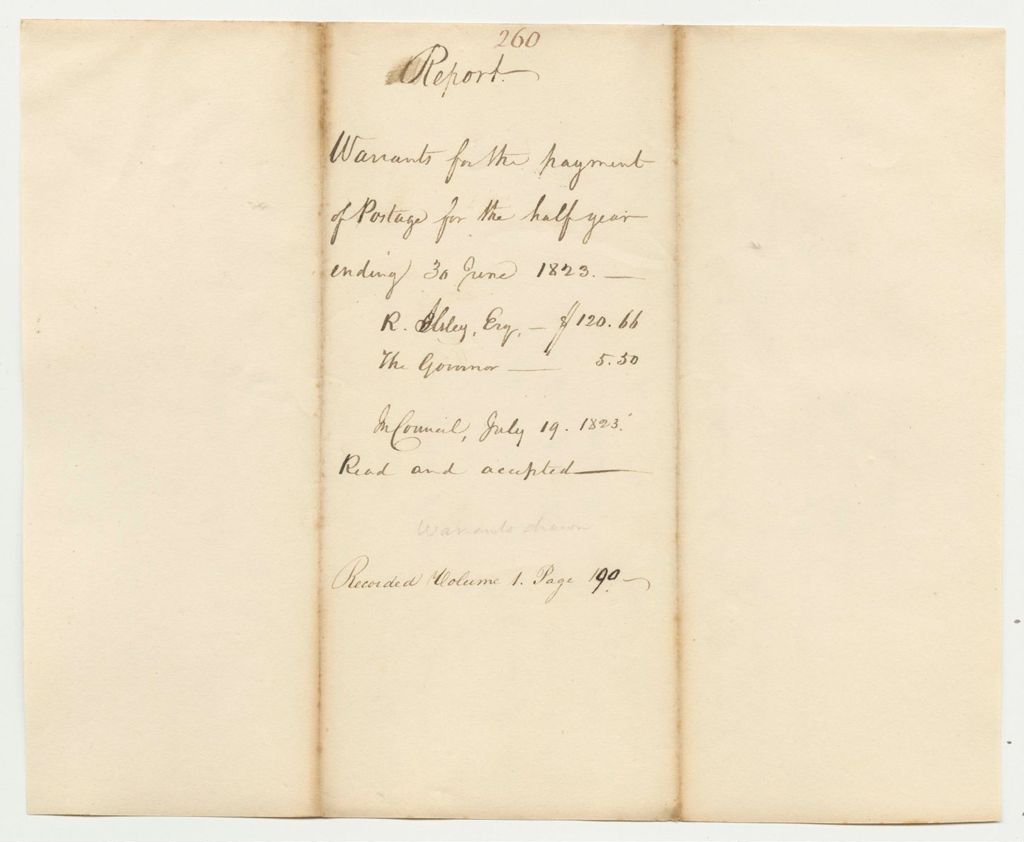 260
Report.
Warrants for the payment
of Postage for the half year
ending 30 June 1823. —
R. Ilsley, Esq, — $120.66
The Governor — " 5.50
In Council, July 19. 1823.
Read and accepted —
Warrants drawn
Recorded Volume 1. Page 190 —